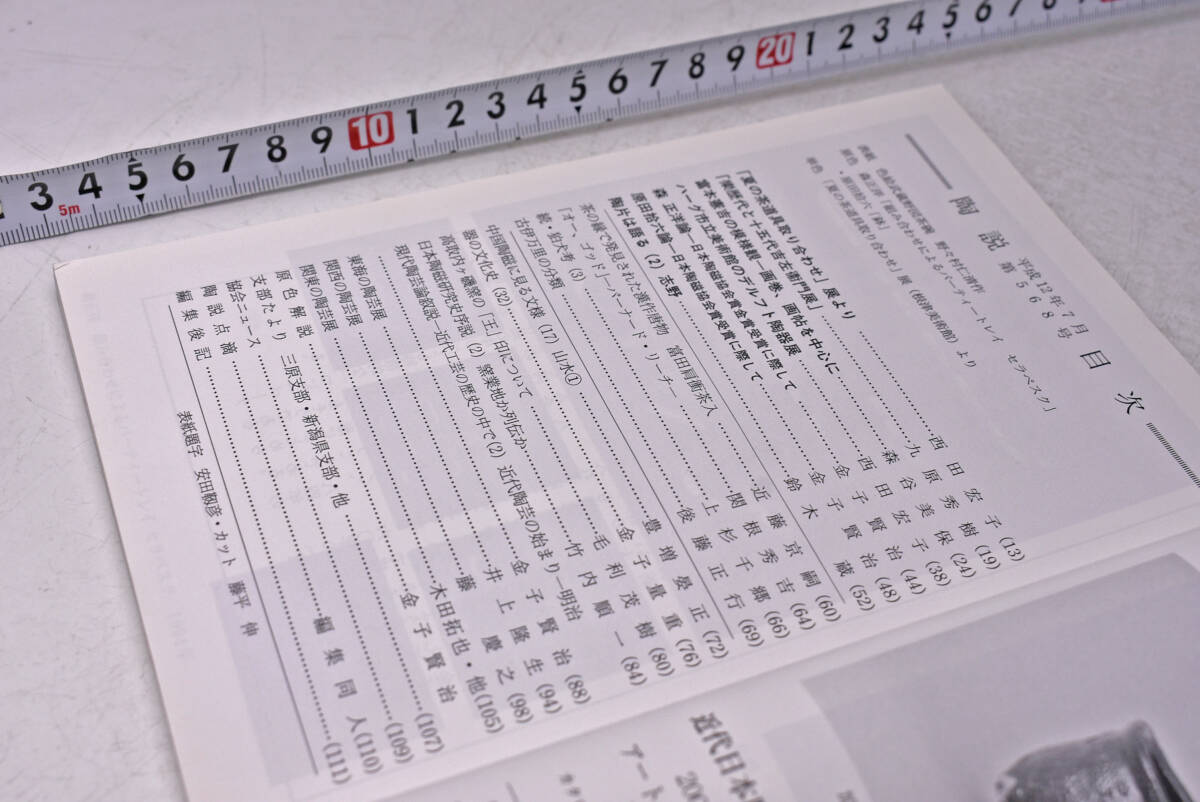 3 4 5 6 7 8 9 10 1 2 3 4 5 6 7 8 9 20 1 2 3 4 5 6 7 8 9
5m
陶説 第568号 平成12年7月 目次
表紙 色絵武蔵野図茶碗 野々村仁清作
原色 森正洋「組み合わせによるパーティートレイ セラベスク」
・原田拾六「鉢」
単色 「夏の茶道具取り合わせ」展(根津美術館)より
「夏の茶道具取り合わせ」展より……西田宏子(13)
「楽歴代と十五代吉左衛門展」……九原秀樹(19)
富本憲吉の模様観―画巻、画帖を中心に……森谷美保(24)
ハーグ市立美術館のデルフト陶器展……西田宏子(38)
森 正洋論―日本陶磁協会賞金賞受賞に際して……金子賢治(44)
原田拾六論―日本陶磁協会賞受賞に際して……金子賢治(48)
陶片は語る(2)志野……鈴木 蔵(52)
茶の縁で発見された漢作唐物 富田肩衝茶入……近藤京嗣(60)
「オー、ゴッド」―バーナード・リーチ―……関根秀吉(64)
続・狛犬考(3)……上杉千郷(66)
古伊万里の分類……後藤正行(69)
中国陶磁に見る文様(17)山水①……豊増晏正(72)
器の文化史(32)……金子量重(76)
高取内ヶ磯窯の「王」印について……毛利茂樹(80)
日本陶磁研究史序説(2)窯業地か列伝か……竹内順一(84)
現代陶芸論叙説―近代工芸の歴史の中で(2)近代陶芸の始まり―明治……金子賢治(88)
東海の陶芸展……井上隆生(94)
関西の陶芸展……藤 慶之(98)
関東の陶芸展……木田拓也・他(105)
原色解説……金子賢治(107)
支部たより 三原支部・新潟県支部・他
協会ニュース……(109)
陶説点滴……編集同人(110)
編集後記……(111)
表紙題字 安田靫彦・カット 藤平 伸
近代日本
200
アート